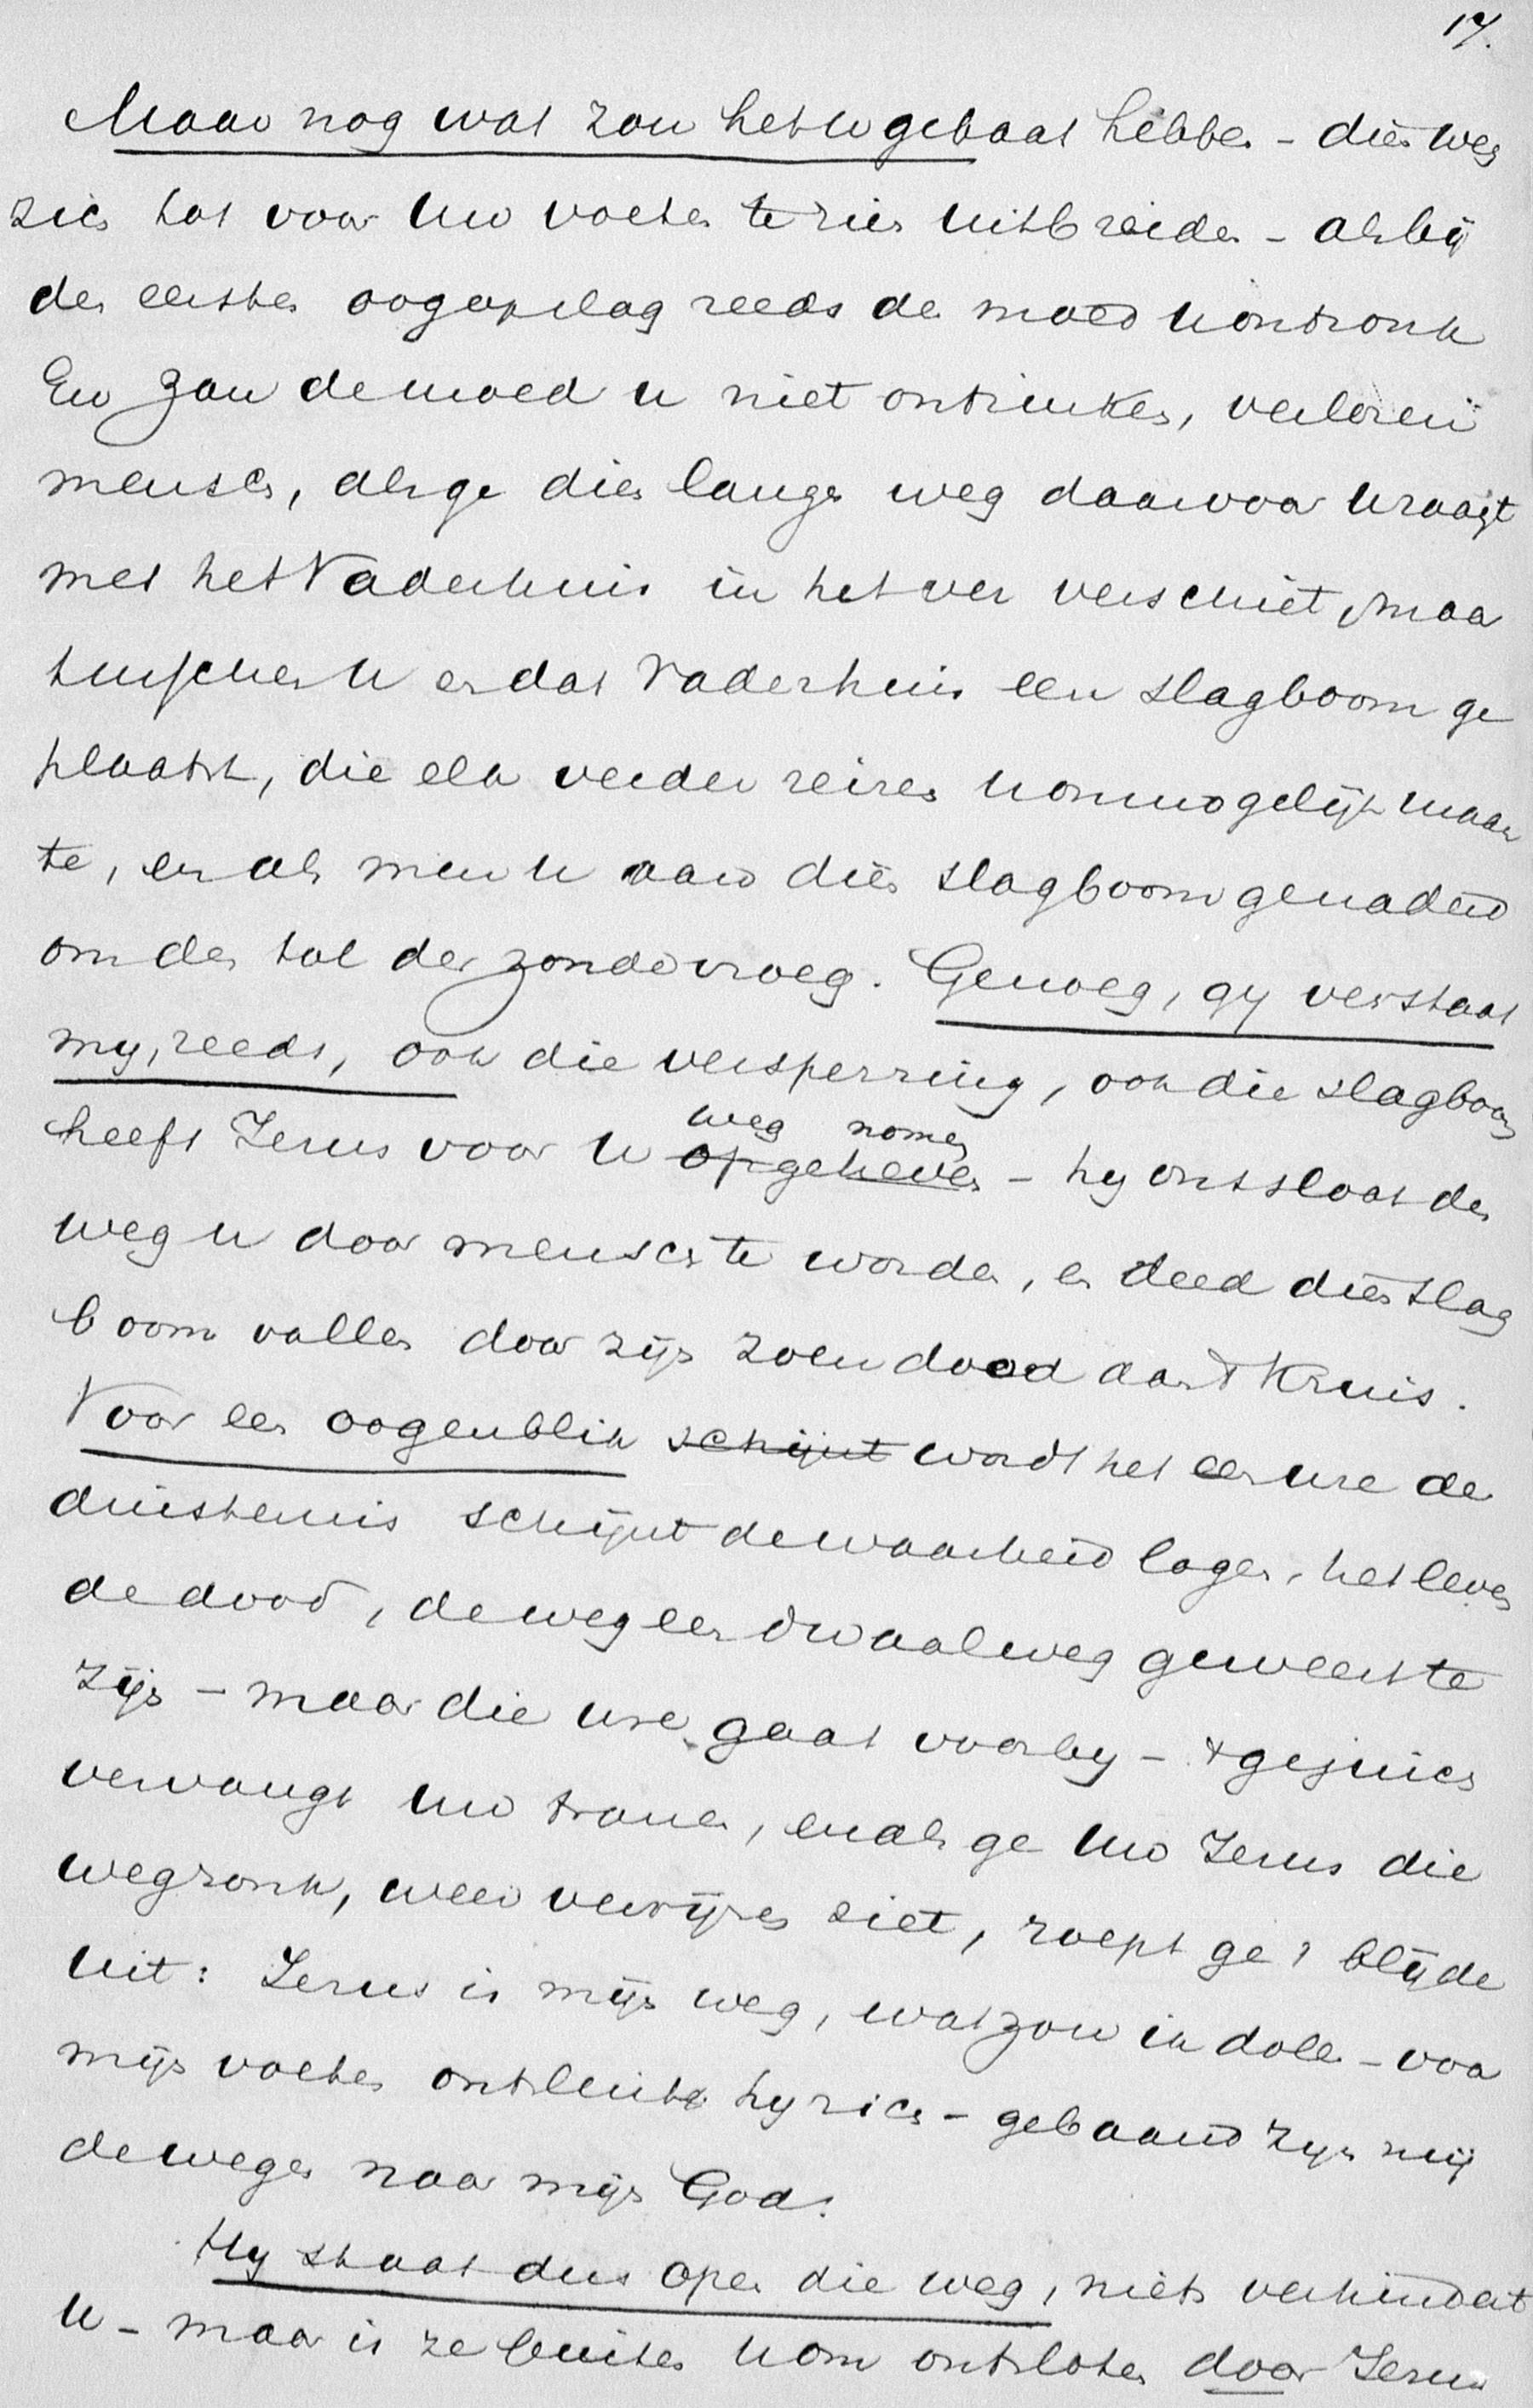 17.
Maar nog wat zou het u gebaat hebben - dien weg
zich tot voor Uw voeten te zien uitbreiden - als bij
den eersten oogopslag reeds de moed U ontzonk
En zou de moed u niet ontzinken, verloren
mensch, als ge dien langen weg daarvoor U zaagt
met het Vaderhuis in het ver verschiet, maar
tusschen U en dat Vaderhuis een slagboom ge
plaatst, die elk verder reizen U onmogelijk maak
te, en als men U aan dien slagboom genaderd
om den tol der zonde vroeg. Genoeg, gy verstaat
my, reeds, ook die versperring, ook die slagboom
heeft Jezus voor U opgeheven - hy ontsloot den
weg nomen
weg u door mensch te worden, en deed dien slag
boom vallen door zijn zoendood aan 't Kruis.
Voor een oogenblik schijnt wordt het een ure der
duisternis schijnt de waarheid logen, het leven
de dood, de weg een dwaalweg geweest te
zijn - maar die ure gaat voorby - 't gejuich
vervangt uw tranen, en als ge Uw Jezus die
wegzonk, weer verrijzen ziet, roept ge 't blijde
uit: Jezus is mijn weg, wat zou ik dolen - voor
mijn voeten ontsluit hy zich - gebaand zyn mij
de wegen naar mijn God.
Hy staat dus open die weg, niets verhindert
U - maar is ze buiten U om ontsloten door Jezus